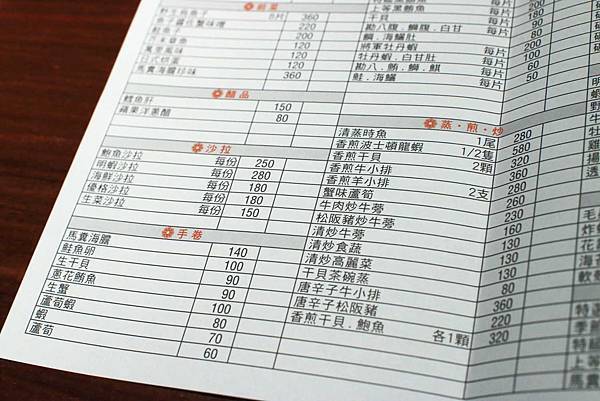 前菜
8片 360
220
魚子醬佐蟹味噌 200
鮭魚子 120
萬里風味 120
日式烘蛋 120
馬糞海膽珍味 360
醋品
鱈魚肝 150
蘋果洋蔥醋 80
沙拉
鮑魚沙拉 每份 250
明蝦沙拉 每份 280
海鮮沙拉 每份 180
優格沙拉 每份 180
生菜沙拉 每份 150
手卷
馬糞海膽 140
鮭魚卵 100
生干貝 90
蔥花鮪魚 90
生蟹 100
蘆筍蝦 80
蝦 70
蘆筍 60
上等黑鮪魚 每片
干貝 每片
勘八腹．鯛腹．白甘 每片
鯛．海鱺肚
將軍牡丹蝦 每片
牡丹蝦．白甘肚 每片
勘八．鮪．鯛．鯕 每片 60
鮭．海鱺 每片 50
蒸・煎・炒
清蒸時魚 1尾 280
香煎波士頓龍蝦 1/2隻 580
香煎干貝 2顆 320
香煎牛小排 280
香煎羊小排 2支 360
蟹味蘆筍 260
牛肉炒牛蒡 230
松阪豬炒牛蒡 160
清炒牛蒡 130
清炒食蔬 130
清炒高麗菜 130
干貝茶碗蒸 80
唐辛子牛小排 360
唐辛子松阪豬 220
香煎干貝．鮑魚 各1顆 320